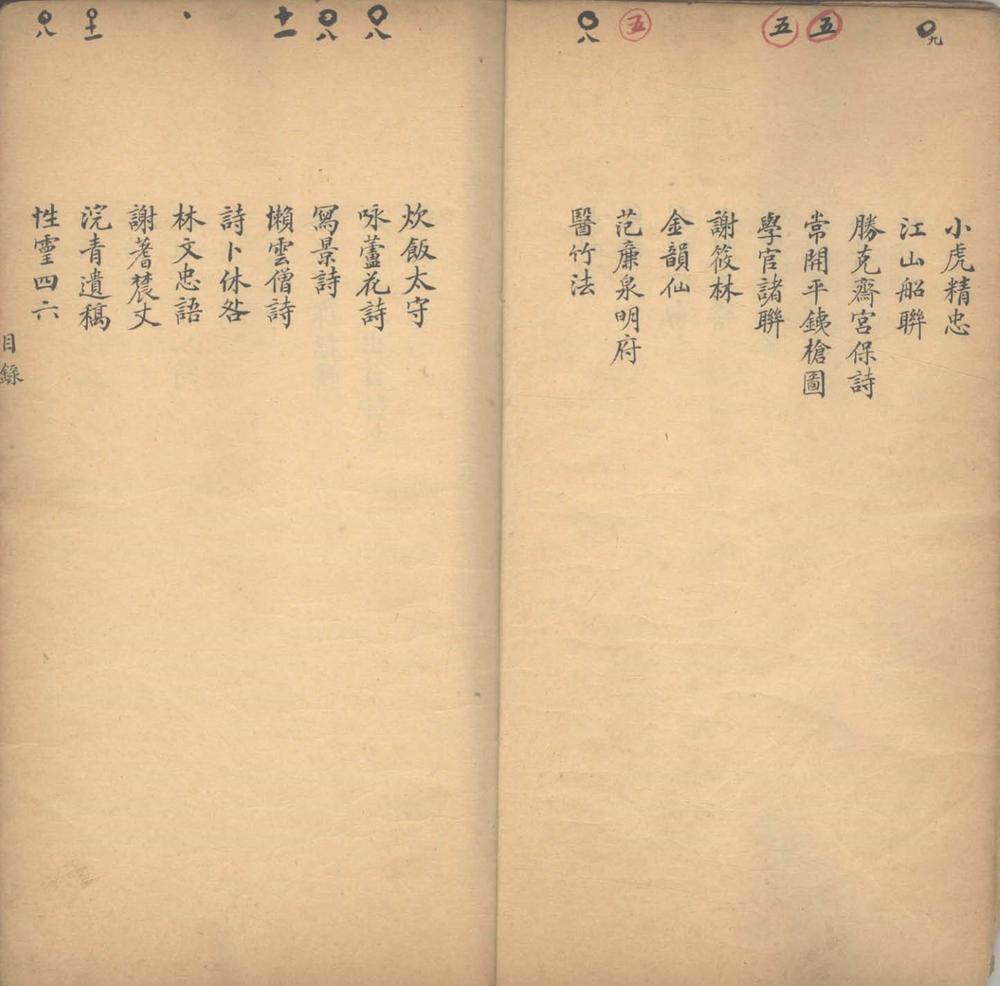 九
五
五
五
八
小虎精忠
江山船聯
勝克齋宮保詩
常開平銕槍圖
學官諸聯
謝筱林
金韻仙
范廉泉明府
醫竹法
八
八
十一
十一
八
炊飯太守
咏蘆花詩
冩景詩
懶雲僧詩
詩卜休咎
林文忠語
謝蓍農丈
浣青遺稿
性靈四六
目錄